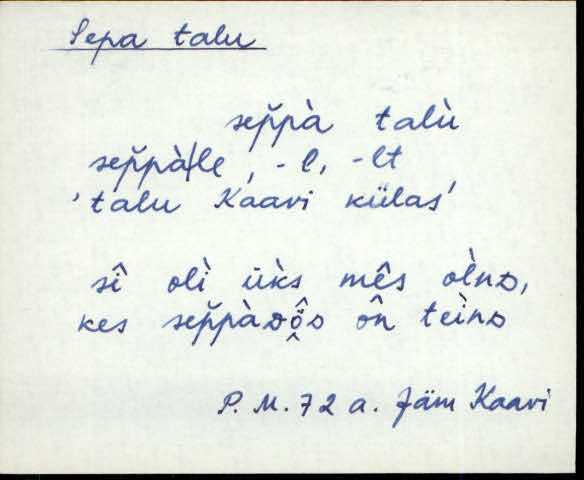 Sepa talu
sep̆pà talù
sep̆pà|le, -l, -lt
'talu Kaavi külas'
sî olì üks mês olǹᴅ,
kes sep̆pàᴅö̭̂ᴅ ôn teìnᴅ
P. M. 72 a. Jäm Kaavi